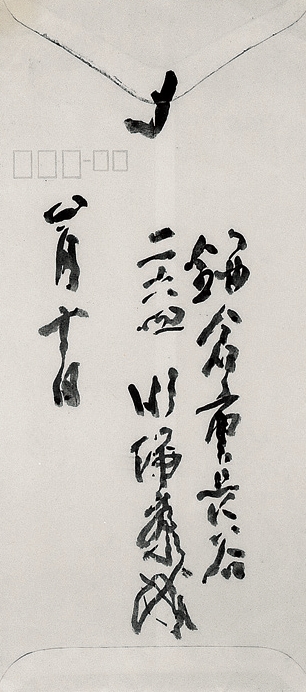 〆
鎌倉市長谷
二六四 川端康成
八月十日